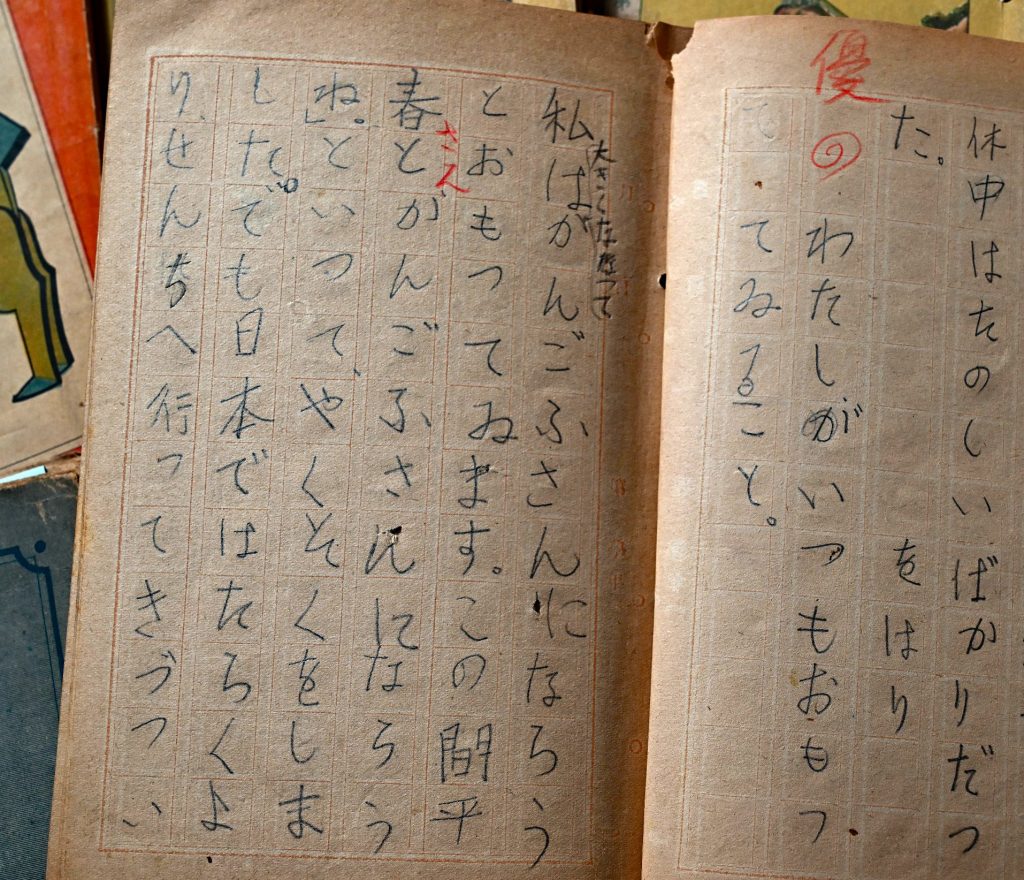 休中はたのしいばかりだつ
た。 をはり
優
わたしがいつもおもつ
てゐること。
大きくなつて
私はがんごふさんにならう
とおもつてゐます。この間平
さん
春とがんごふさんにならう
ね。」といつて、やくそくをしま
した。でも日本ではたらくよ
り、せんちへ行つてきづつい